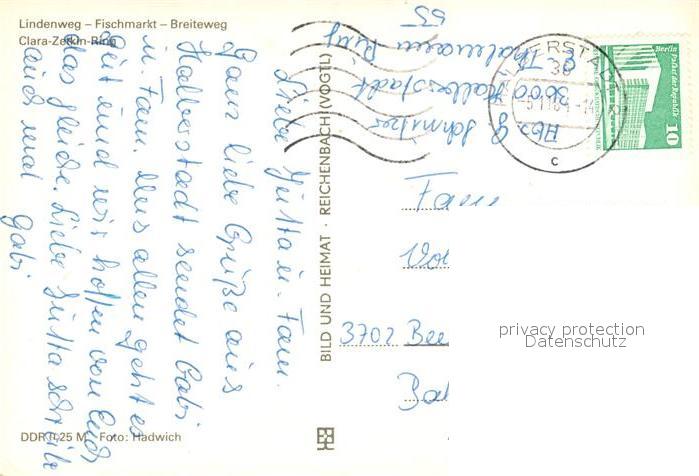 Lindenweg – Fischmarkt – Breiteweg
Clara-Zetkin-Ring
Liebe Jutta u. Fam.
Ganz liebe Grüße aus
Halberstadt sendet Gabi
u. Fam. Uns allen geht es
gut und wir hoffen von Euch
das gleiche. Liebe Jutta schreib
auch mal
Gabi
DDR 0,25 M Foto: Hadwich
BILD UND HEIMAT · REICHENBACH (VOGTL)
Abs. G. Schnitzer
3600 Halberstadt
E. Thälmann Ring
55
HALBERSTADT
36
c
Berlin
Palast der Republik
10
Fam
3702 Bee
privacy protection
Datenschutz